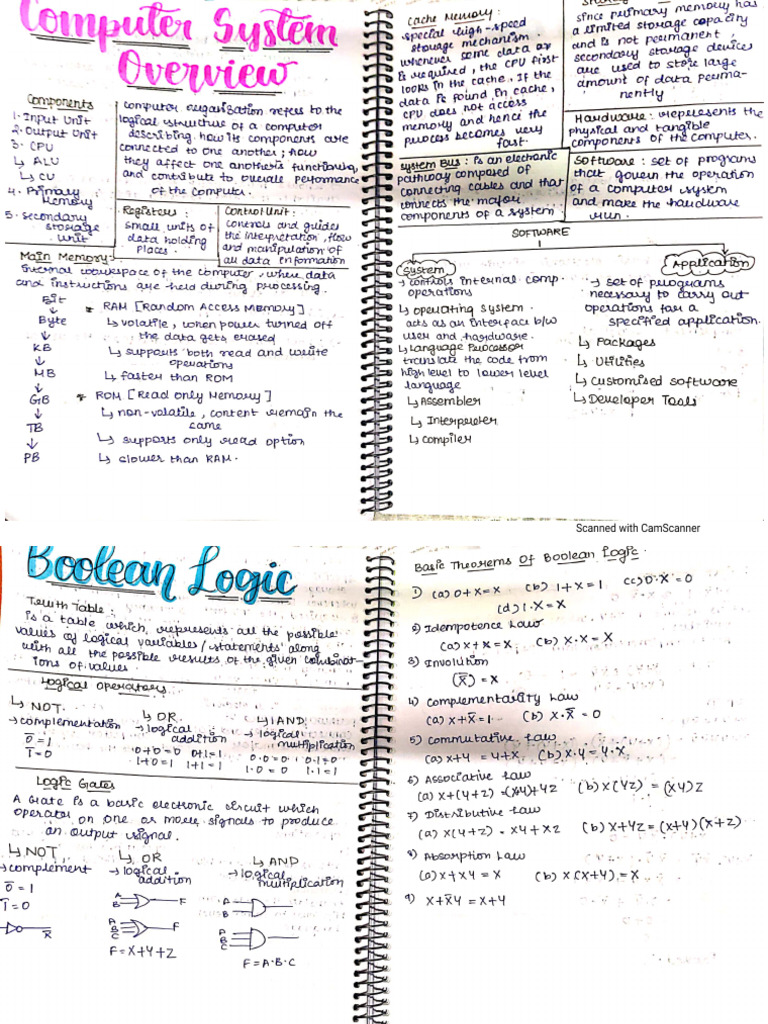 Computer System
Overview
Components
1. Input Unit
2. Output Unit
3. CPU
↳ ALU
↳ CU
4. Primary
Memory
5. Secondary
storage
unit
Computer organisation refers to the
logical structure of a computer
describing how its components are
connected to one another; how
they affect one another's functioning,
and contribute to overall performance
of the computer.
Registers :
small units of
data holding
places.
Control Unit:
controls and guides
the interpretation, flow
and manipulation of
all data information
Main Memory:-
Internal workspace of the computer, where data
and instructions are held during processing.
Bit
↓
Byte
↓
KB
↓
MB
↓
GB
↓
TB
↓
PB
* RAM [Random Access Memory]
↳ volatile, when power turned off
the data gets erased
↳ supports both read and write
operations
↳ faster than ROM
* ROM [Read Only Memory]
↳ non-volatile, content remain the
same
↳ supports only read option
↳ slower than RAM.
Cache Memory:
special high-speed
storage mechanism.
whenever some data
is required, the CPU first
looks in the cache. If the
data is found in cache,
CPU does not access
memory and hence the
process becomes very
fast.
since primary memory has
a limited storage capacity
and is not permanent,
secondary storage devices
are used to store large
amount of data perma-
nently
Hardware : represents the
physical and tangible
components of the computer.
System Bus : Is an electronic
pathway composed of
connecting cables and that
connects the major
components of a system.
Software : set of programs
that govern the operation
of a computer system
and make the hardware
run.
SOFTWARE
System
→ controls internal comp.
operations
↳ operating system.
acts as an interface b/w
user and hardware.
↳ Language Processor
translate the code from
high level to lower level
language
↳ Assembler
↳ Interpreter
↳ compiler
Application
→ set of programs
necessary to carry out
operations for a
specified application.
↳ Packages
↳ Utilities
↳ customised software
↳ Developer Tools
Scanned with CamScanner
Boolean Logic
Truth Table :
is a table which represents all the possible
values of logical variables/statements along
with all the possible results of the given combinat-
ions of values.
Logical Operators
↳ NOT.
→ complementation
0̅ = 1
1̅ = 0
↳ OR
→ logical
addition
0+0=0 0+1=1
1+0=1 1+1=1
↳ AND
→ logical
multiplication
0.0=0 0.1=0
1.0=0 1.1=1
Logic Gates
A Gate is a basic electronic circuit which
operator on one or more signals to produce
an output signal.
↳ NOT
→ complement
0̅ = 1
1̅ = 0
X̅
↳ OR
→ logical
addition
A
B
F
A
B
C
F
F = X+Y+Z
↳ AND
→ logical
multiplication
A
B
A
B
C
F = A.B.C
Basic Theorems Of Boolean Logic.
1) (a) 0+X=X (b) 1+X=1 (c) 0.X=0
(d) 1.X=X
2) Idempotence Law
(a) X+X=X (b) X.X=X
3) Involution
(X̿) = X
4) Complementarity Law
(a) X+X̅=1 (b) X.X̅=0
5) Commutative Law
(a) X+Y = Y+X (b) X.Y = Y.X
6) Associative Law
(a) X+(Y+Z) = (X+Y)+Z (b) X(YZ) = (XY)Z
7) Distributive Law
(a) X(Y+Z) = XY+XZ (b) X+YZ = (X+Y)(X+Z)
8) Absorption Law
(a) X+XY = X (b) X(X+Y) = X
9) X+X̅Y = X+Y